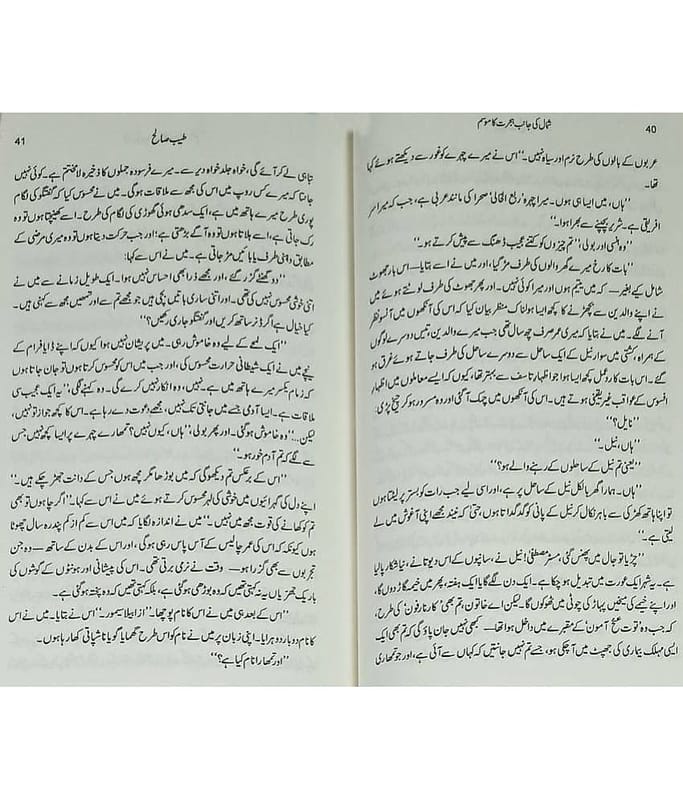 40
شمال کی جانب ہجرت کا موسم
عربوں کے بالوں کی طرح نرم اور سیاہ نہیں۔‘‘ اس نے میرے چہرے کو غور سے دیکھتے ہوئے کہا
تھا۔
’’ہاں، میں ایسا ہی ہوں۔ میرا چہرہ ’ربع الخالی‘ صحرا کی مانند عربی ہے، جب کہ میرا سر
افریقی ہے۔ شریر بچپنے سے بھرا ہوا۔‘‘
وہ ہنسی اور بولی ’’تم چیزوں کو کتنے عجیب ڈھنگ سے پیش کرتے ہو۔‘‘
’’بات کا رخ میرے گھر والوں کی طرف مڑ گیا، اور میں نے اسے بتایا — اس بار جھوٹ
شامل کیے بغیر — کہ میں یتیم ہوں اور میرا کوئی نہیں۔ اور پھر جھوٹ کی طرف لوٹتے ہوئے میں
نے اپنے والدین سے بچھڑنے کا کچھ ایسا ہولناک منظر بیان کیا کہ اس کی آنکھوں میں آنسو نظر
آنے لگے۔ میں نے بتایا کہ میری عمر صرف چھ سال تھی جب میرے والدین، تیس دوسرے لوگوں
کے ہمراہ، کشتی میں سوار نیل کے ایک ساحل سے دوسرے ساحل کی طرف جاتے ہوئے غرق ہو
گئے۔ اس بات کا ردعمل کچھ ایسا ہوا جو اظہار تاسف سے بہتر تھا، کیوں کہ ایسے معاملوں میں اظہار
افسوس کے عواقب غیر یقینی ہوتے ہیں۔ اس کی آنکھوں میں چمک آ گئی اور وہ مسرور ہو کر چیخ پڑی:
’’نایل؟‘‘
’’ہاں، نیل۔‘‘
’’یعنی تم نیل کے ساحلوں کے رہنے والے ہو؟‘‘
’’ہاں۔ ہمارا گھر بالکل نیل کے ساحل پر ہے، اور اسی لیے جب رات کو بستر پر لیٹتا ہوں
تو اپنا ہاتھ کھڑکی سے باہر نکال کر نیل کے پانی کو گدگداتا ہوں، حتیٰ کہ نیند مجھے اپنی آغوش میں لے
لیتی ہے۔‘‘
’’چڑیا تو جال میں پھنس گئی، مسٹر مصطفی! نیل نے، سانپوں کے اس دیوتا نے، نیا شکار پا لیا
ہے۔ یہ شہر ایک عورت میں تبدیل ہو چکا ہے۔ ایک دن لگے گا یا ایک ہفتہ، پھر میں خیمہ گاڑ دوں گا،
اور اپنے خیمے کی میخیں پہاڑ کی چوٹی میں ٹھوکوں گا۔ لیکن اے خاتون، تم بھی ’کارنارفون‘ کی طرح،
کہ جب وہ ’توت عنخ آمون‘ کے مقبرے میں داخل ہوا تھا — کبھی نہیں جان پاؤ گی کہ تم بھی ایک
ایسی مہلک بیماری کی جھپٹ میں آ چکی ہو، جسے تم نہیں جانتیں کہ کہاں سے آئی ہے، اور جو تمھاری
طیب صالح
41
تباہی لے کر آئے گی، خواہ جلد خواہ دیر سے۔ میرے فرسودہ جملوں کا ذخیرہ لامختتم ہے۔ کوئی نہیں
جانتا کہ میرے کس روپ میں اس کی مجھ سے ملاقات ہو گی۔ میں نے محسوس کیا کہ گفتگو کی لگام
پوری طرح میرے ہاتھ میں ہے، ایک سدھی ہوئی گھوڑی کی لگام کی طرح۔ اسے کھینچتا ہوں تو وہ
رک جاتی ہے، اسے ہلاتا ہوں تو وہ آگے بڑھتی ہے؛ اور جب حرکت دیتا ہوں تو وہ میری مرضی کے
مطابق دہنی طرف یا بائیں مڑ جاتی ہے۔ میں نے اس سے کہا:
’’دو گھنٹے گزر گئے، اور مجھے ذرا بھی احساس نہیں ہوا۔ ایک طویل زمانے سے میں نے
اتنی خوشی محسوس نہیں کی تھی۔ اور اتنی ساری باتیں بچی ہیں جو مجھے تم سے اور تمھیں مجھ سے کہنی ہیں۔
کیا خیال ہے اگر ڈنر ساتھ کریں اور گفتگو جاری رکھیں؟‘‘
’’ایک لمحے کے لیے وہ خاموش رہی۔ میں پریشان نہیں ہوا کیوں کہ اپنے ڈایافرام کے
نیچے میں نے ایک شیطانی حرارت محسوس کی، اور جب میں اس کو محسوس کرتا ہوں تو جان جاتا ہوں
کہ زمام یکسر میرے ہاتھ میں ہے۔ نہیں، وہ انکار نہیں کرے گی۔ وہ کہنے لگی، ’یہ ایک عجیب سی
ملاقات ہے۔ ایسا آدمی جسے میں جانتی تک نہیں، مجھے دعوت دے رہا ہے۔ اس کا کچھ جواز تو نہیں،
لیکن...‘‘ وہ خاموش ہو گئی۔ اور پھر بولی، ’’ہاں، کیوں نہیں؟ تمھارے چہرے پر ایسا کچھ نہیں جس
سے لگے کہ تم آدم خور ہو۔‘‘
’’اس کے برعکس تم دیکھو گی کہ میں بوڑھا مگر مچھ ہوں جس کے دانت جھڑ چکے ہیں۔‘‘
اپنے دل کی گہرائیوں میں خوشی کی لہر محسوس کرتے ہوئے میں نے اس سے کہا۔ ’’اگر چاہوں تو بھی
تم کو کھانے کی قوت مجھ میں نہیں۔‘‘ میں نے اندازہ لگایا کہ میں اس سے کم از کم پندرہ سال چھوٹا
ہوں کیونکہ اس کی عمر چالیس کے آس پاس رہی ہو گی، اور اس کے بدن کے ساتھ — وہ جن
تجربوں سے بھی گزرا ہو — وقت نے نرمی برتی تھی۔ اس کی پیشانی اور ہونٹوں کے گوشوں کی
باریک جھریاں یہ نہ کہتی تھیں کہ وہ بوڑھی ہو گئی ہے، بلکہ کہتی تھیں کہ وہ پختہ ہو گئی ہے۔
’’اس کے بعد ہی میں نے اس کا نام پوچھا۔ ’’ازابیلا سیمور۔‘‘ اس نے بتایا۔ میں نے اس
کا نام دو بار دوہرایا۔ اپنی زبان پر میں نے نام کو اس طرح گھمایا گویا ناشپاتی کھا رہا ہوں۔
’’اور تمھارا نام کیا ہے؟‘‘